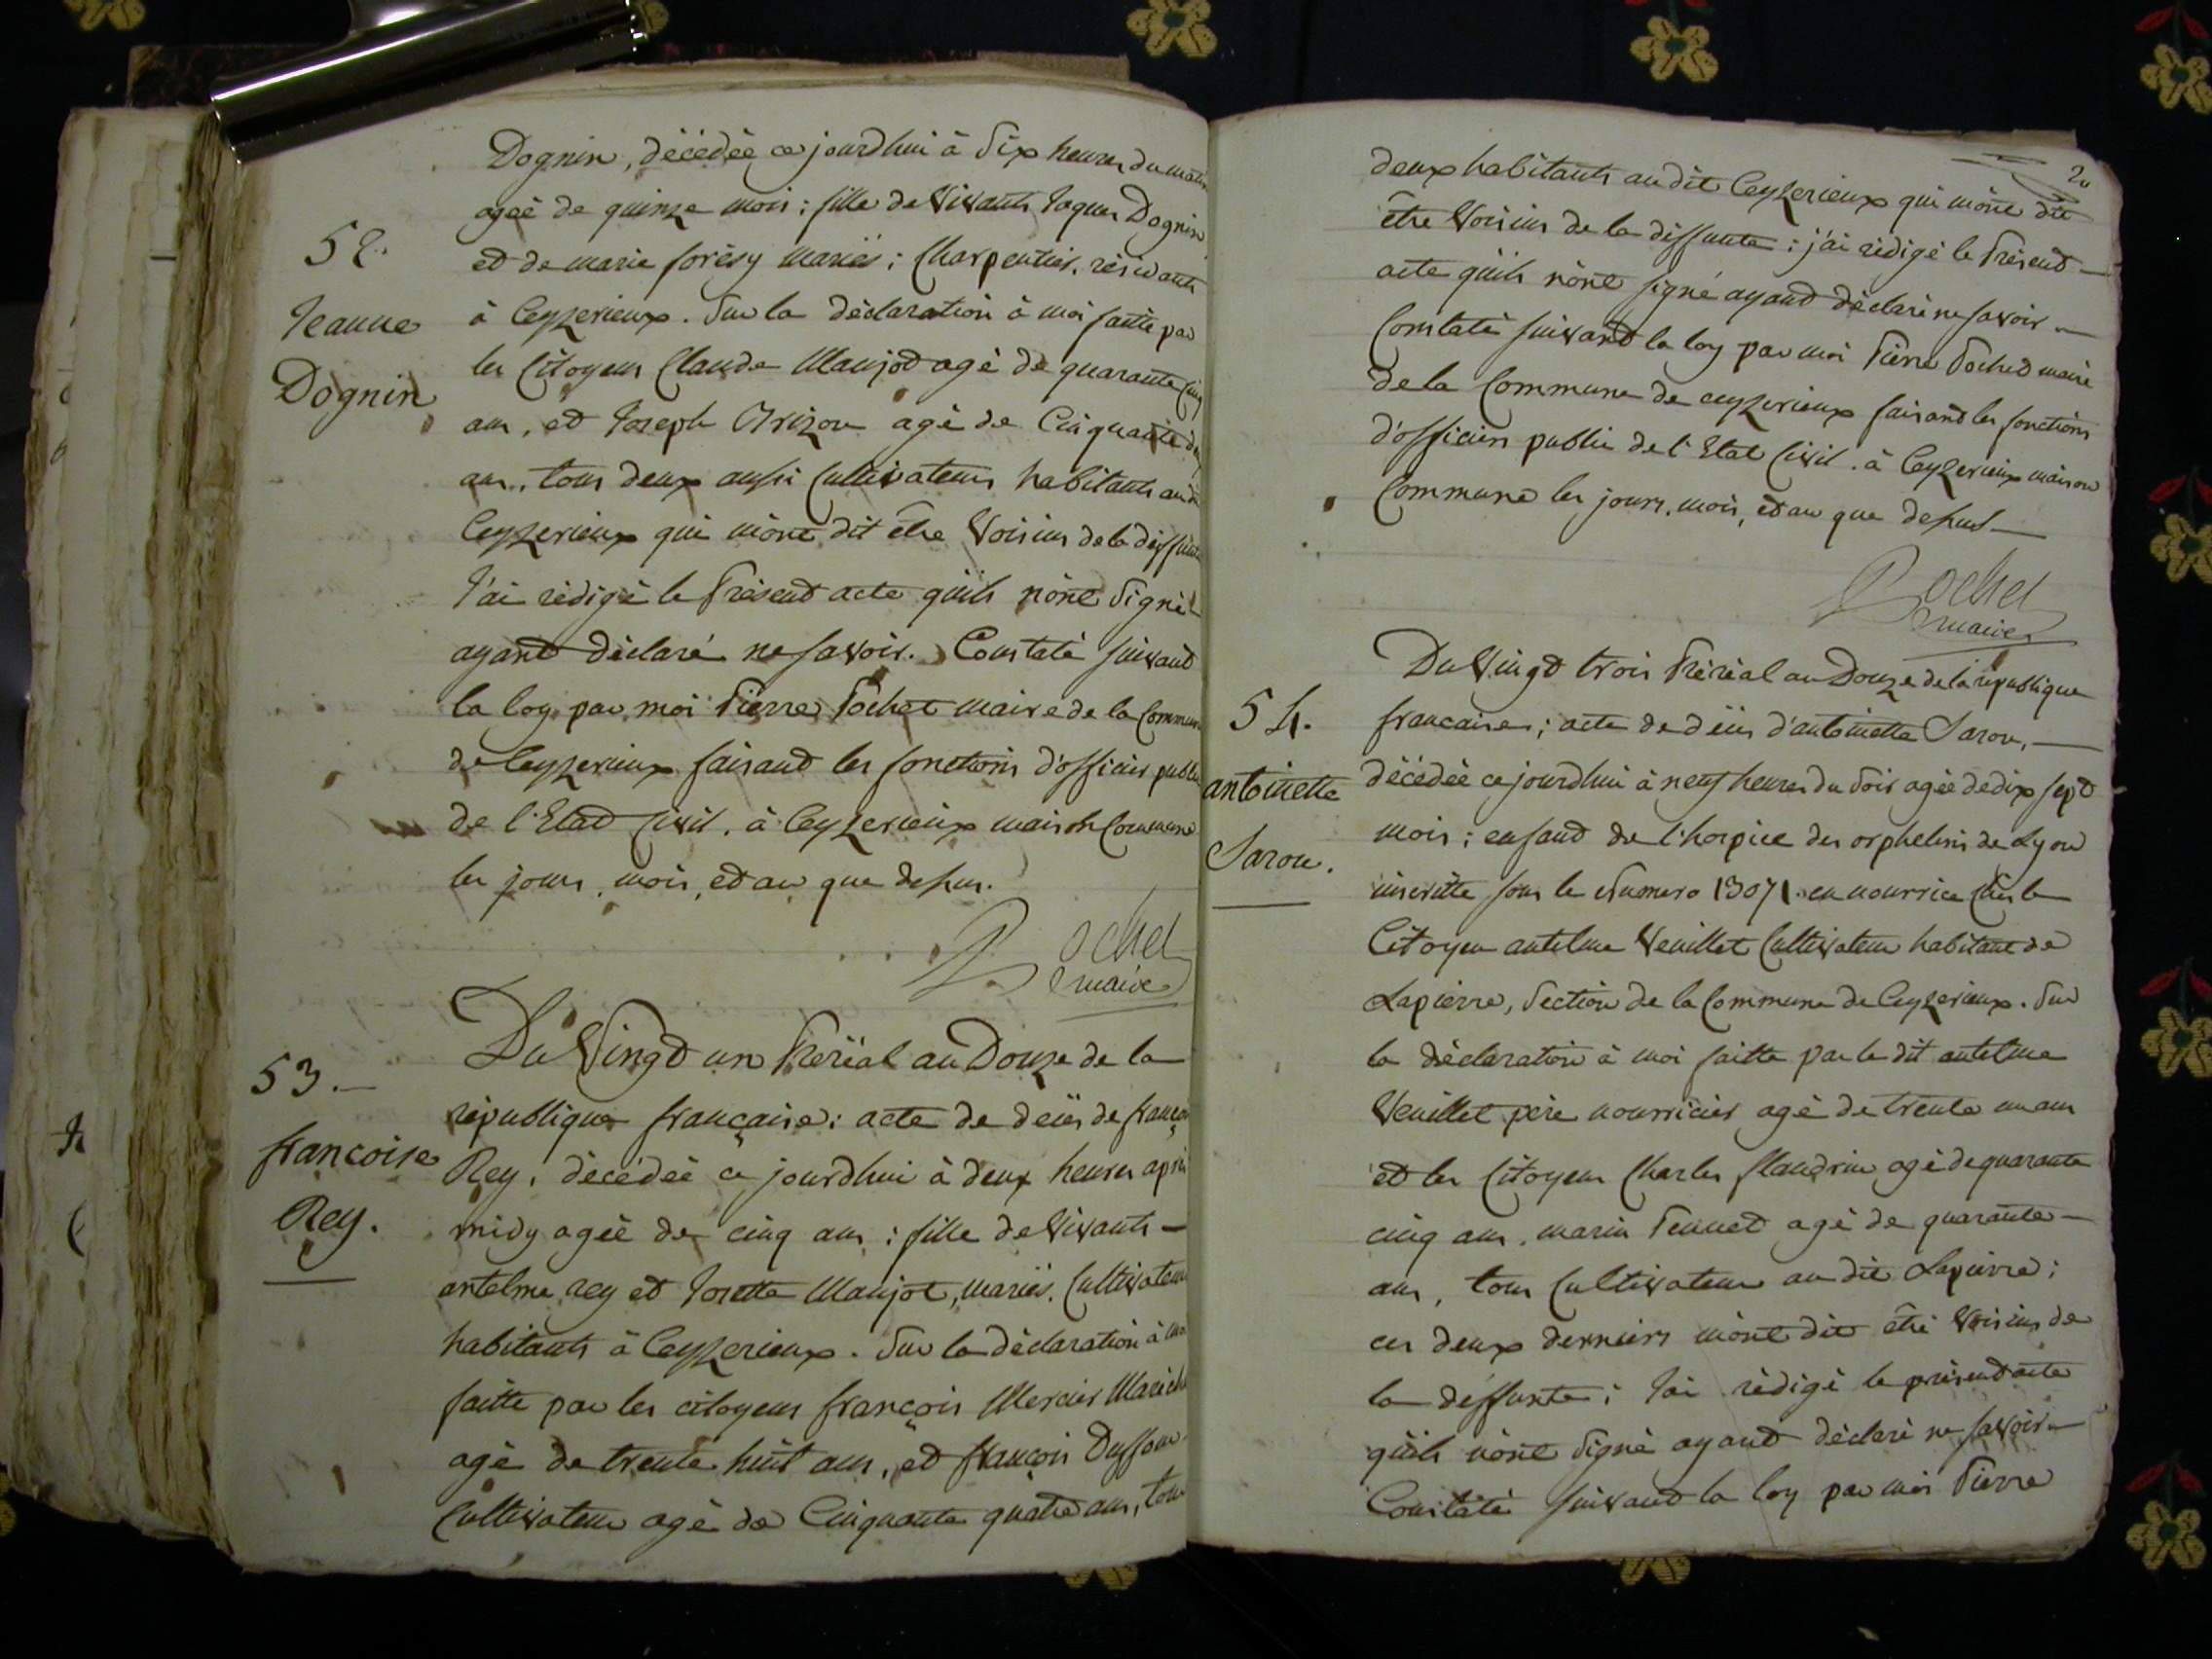 Dognin, décédée ce jourdhui à six heures du matin
agée de quinze mois ; fille de vivants Jaques Dognin
52.
et de marie forésy mariés ; Charpentier, résidants
Jeanne
à Ceyzerieux. Sur la déclaration à moi faitte par
Dognin
les Citoyens Claude Manjot agé de quarante cinq
ans, et Joseph agé de Cinquante
ans, tous deux aussi Cultivateurs habitants audit
Ceyzerieux qui m'ont dit être Voisins de la deffunte
J'ai rédigé le Présent acte qu'ils n'ont Signé
ayant déclaré ne savoir. Constaté suivant
la loy par moi Pierre Pochet maire de la Commune
de Ceyzerieux faisant les fonctions d'officier public
de l'Etat Civil. à Ceyzerieux maison Commune
les jours, mois, et an que dessus.
Pochet
maire
53.
Du Vingt un Preréal an Douze de la
république française : acte de décès de françoise
françoise
Rey, décédée ce jourdhui à deux heures après
Rey.
midy agée de cinq ans ; fille de Vivants
antelme rey et Josette Manjot, mariés, Cultivateurs
habitants à Ceyzerieux. Sur la déclaration à moi
faitte par les citoyens françois Mercier
agé de trente huit ans, et françois
Cultivateur agé de Cinquante quatre ans, tous
20
deux habitants au dit Ceyzerieux qui m'ont dit
être Voisins de la deffunte ; j'ai rédigé le Présent
acte qu'ils n'ont signé ayant déclaré ne savoir
Constaté suivant la loy par moi Pierre Pochet maire
de la Commune de ceyzerieux faisant les fonctions
d'officiers public de l'Etat Civil. à Ceyzerieux maison
Commune les jours, mois, et an que dessus
Pochet
maire
Du Vingt trois Preréal an Douze de la république
54.
francaise ; acte de décès d'antoinette Saron,
antoinette
décédée ce jourdhui à neuf heures du soir agée de dix sept
Saron.
mois ; enfant de l'hospice des orphelins de Lyon
inscritte sous le Numero 13071 en nourrice chés le
Citoyen antelme Veuillet Cultivateur habitant de
Lapierre, Section de la Commune de Ceyzerieux. Sur
la déclaration à moi faitte par le dit antelme
Veuillet père nourricier agé de trente un ans
et les Citoyens Charles flandrin agé de quarante
cinq ans, marin agé de quarante
ans, tous Cultivateurs au dit Lapierre ;
ces deux derniers m'ont dit être Voisins de
la deffunte ; J'ai rédigé le présent acte
qu'ils n'ont Signé ayant déclaré ne savoir
Constaté suivant la loy par moi Pierre